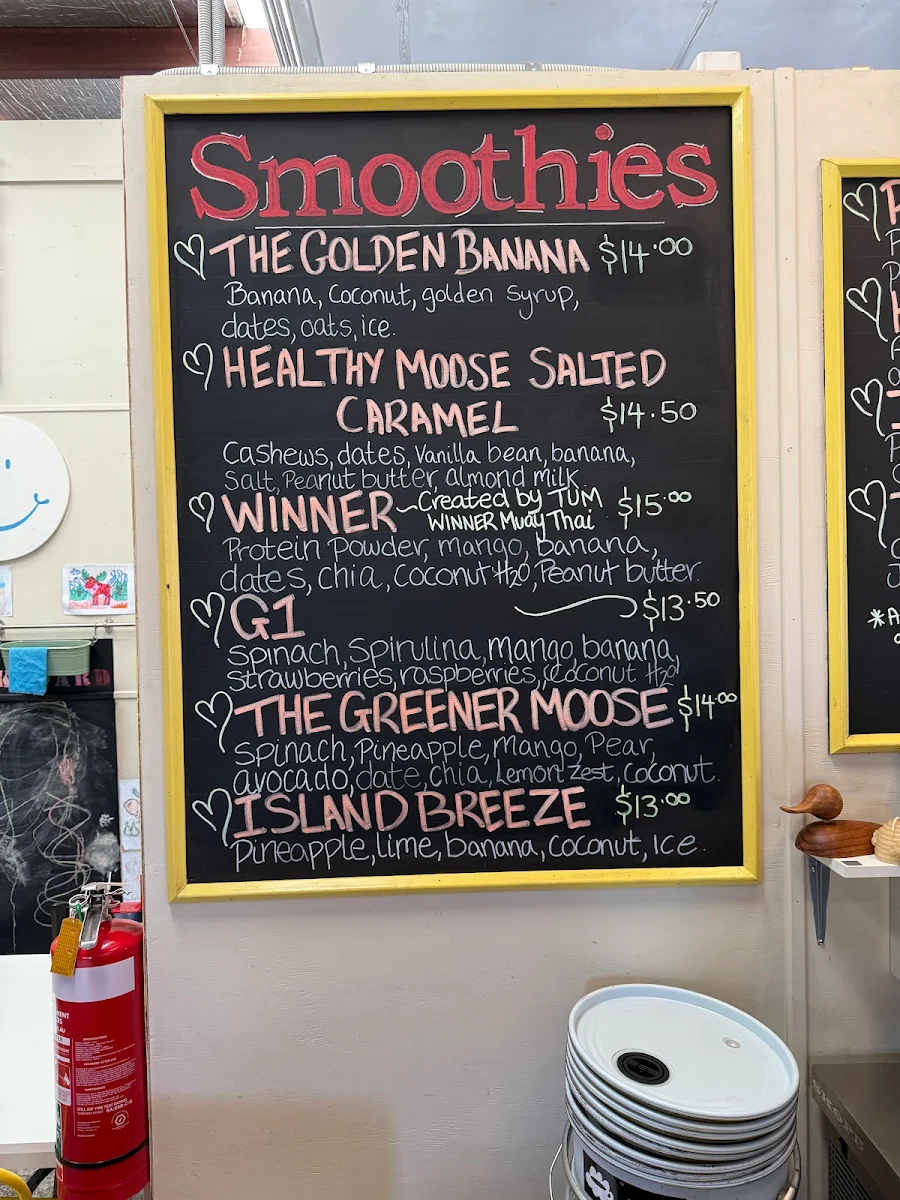 Smoothies
THE GOLDEN BANANA $14.00
Banana, Coconut, golden syrup,
dates, oats, ice.
HEALTHY MOOSE SALTED
CARAMEL $14.50
Cashews, dates, Vanilla bean, banana,
Salt, Peanut butter, almond milk
WINNER ~ Created by TUM $15.00
WINNER Muay Thai
Protein Powder, mango, banana,
dates, chia, Coconut H2O, Peanut butter.
G1 $13.50
Spinach, Spirulina, mango, banana,
strawberries, raspberries, Coconut H2O
THE GREENER MOOSE $14.00
Spinach, Pineapple, Mango, Pear,
avocado, date, chia, Lemon zest, Coconut.
ISLAND BREEZE $13.00
Pineapple, lime, banana, coconut, Ice.